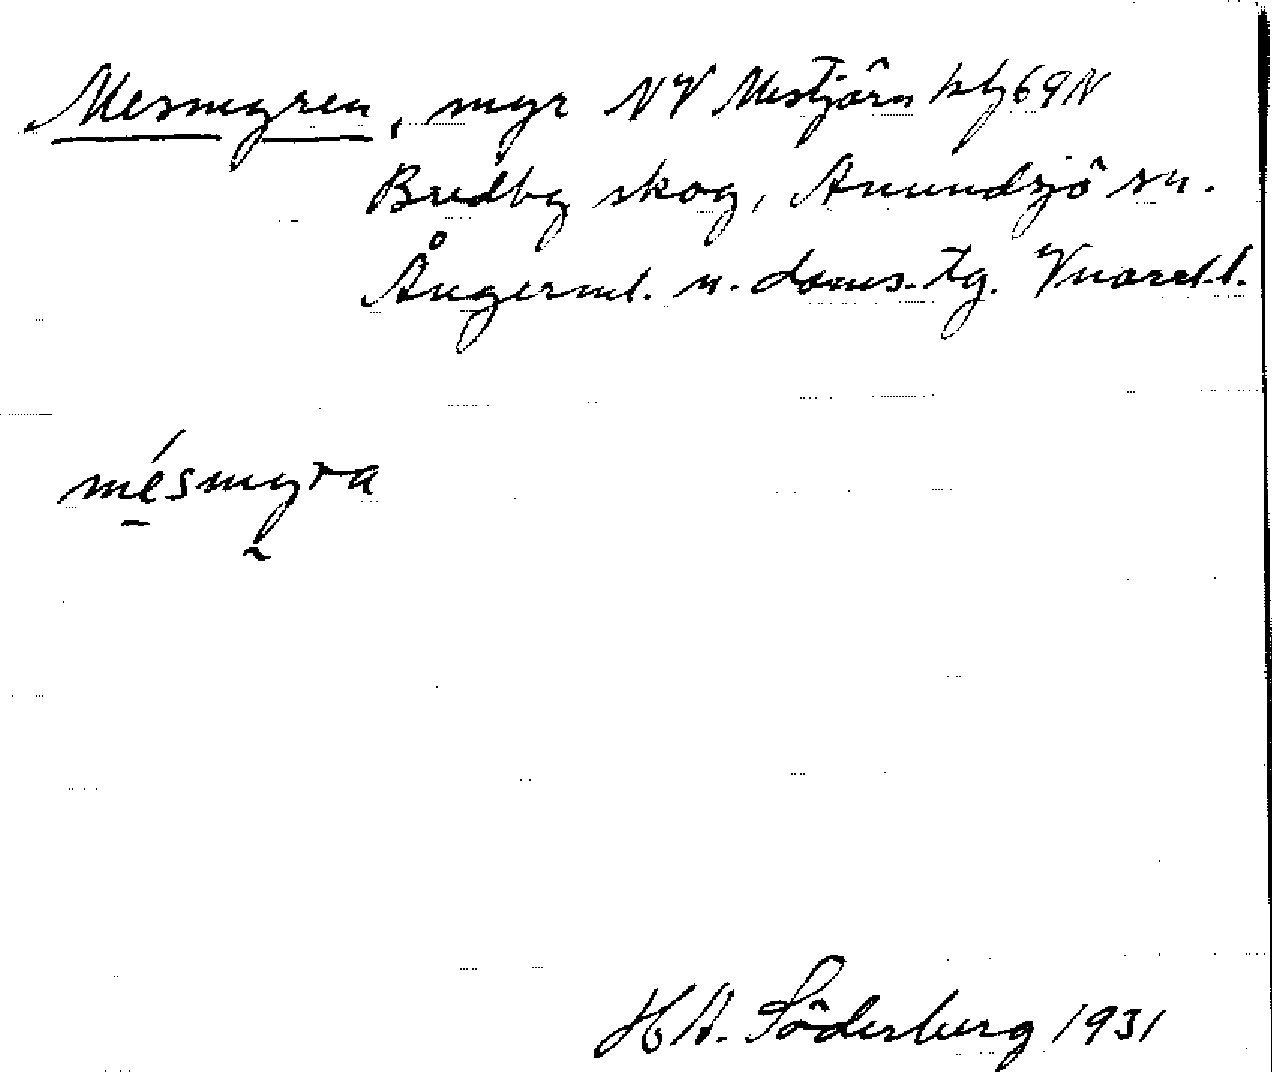 Mesmyren, myr NV Mestjärn kbl 69N
Bredby skog, Anundsjö sn.
Ångerml. n. doms. tg. Vnorrl. l.
mésmyra
H A. Söderberg 1931